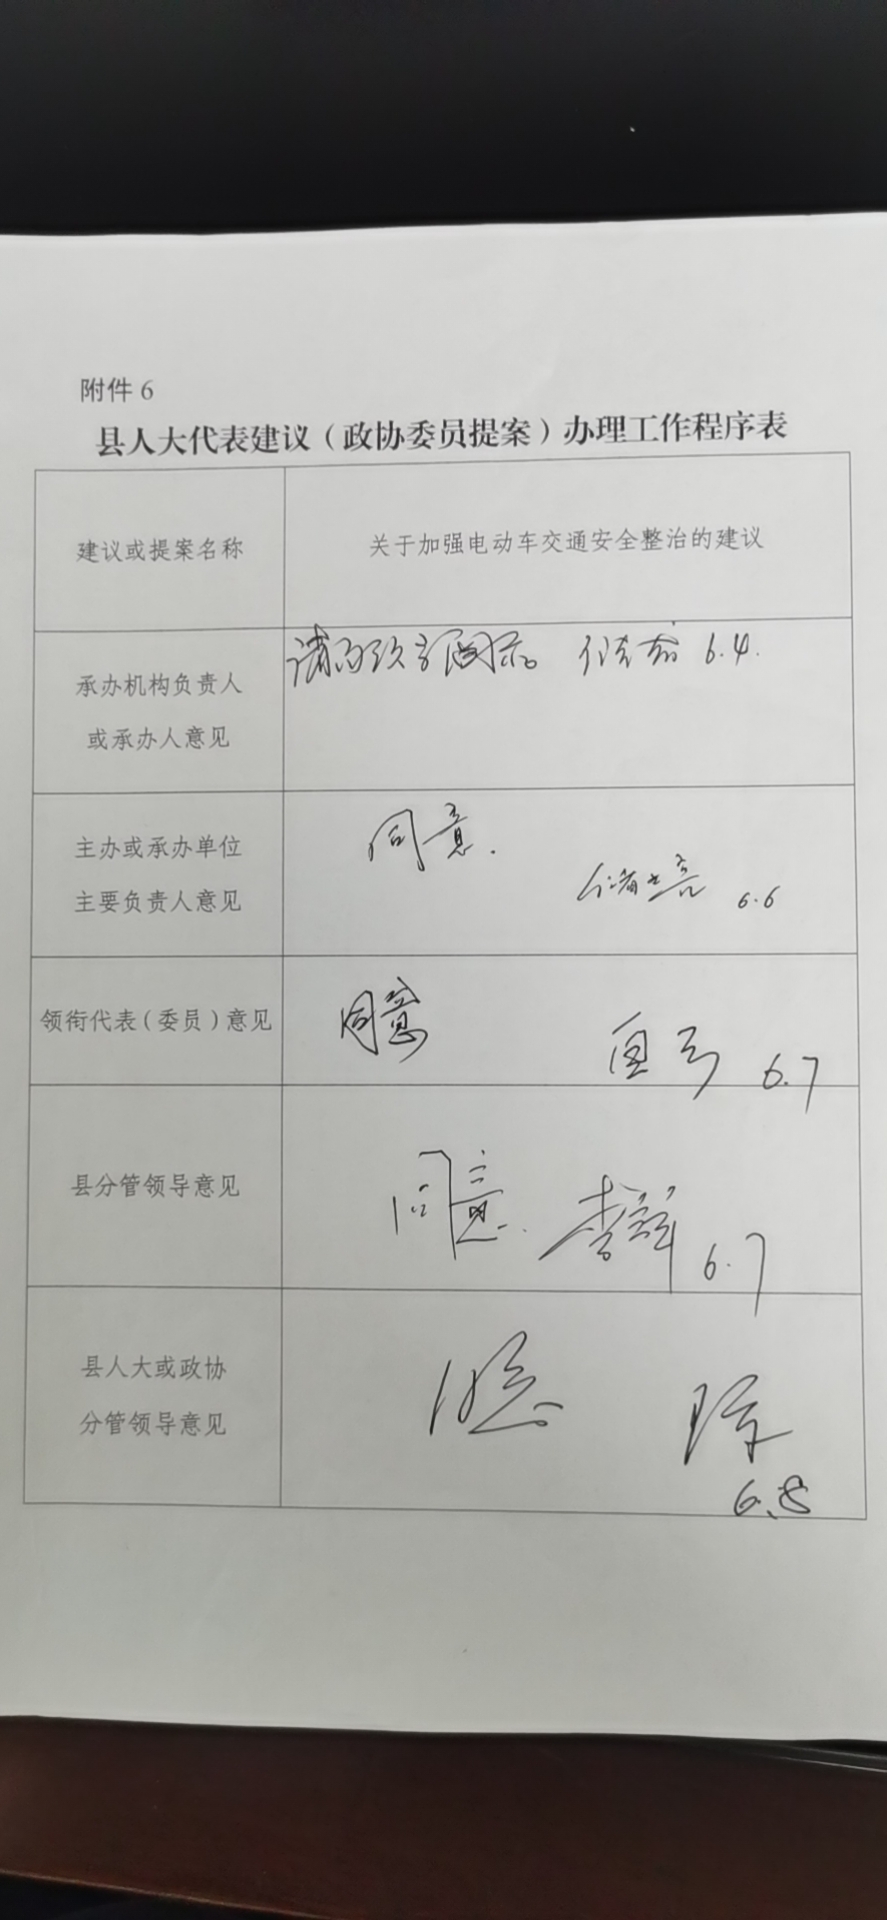 附件 6
县人大代表建议（政协委员提案）办理工作程序表
建议或提案名称
关于加强电动车交通安全整治的建议
承办机构负责人
或承办人意见
6.4.
主办或承办单位
主要负责人意见
同意.
6.6
领衔代表（委员）意见
同意
6.7
县分管领导意见
同意.
6.7
县人大或政协
分管领导意见
同意
6.8